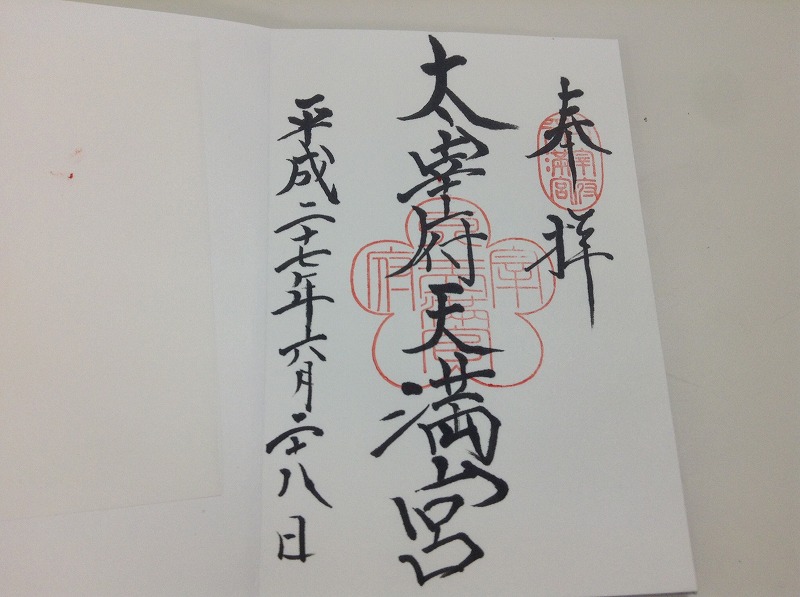 奉拝
太宰府天満宮
平成二十七年六月二十八日